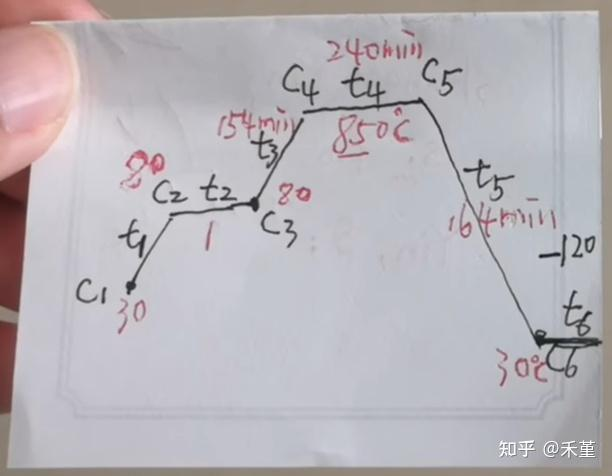 240min
C4 t4 C5
154min
t3
850℃
80
C2 t2
80
C3
t1
1
t5
164min
-120
C1
30
t6
30℃
C6
知乎 @禾堇